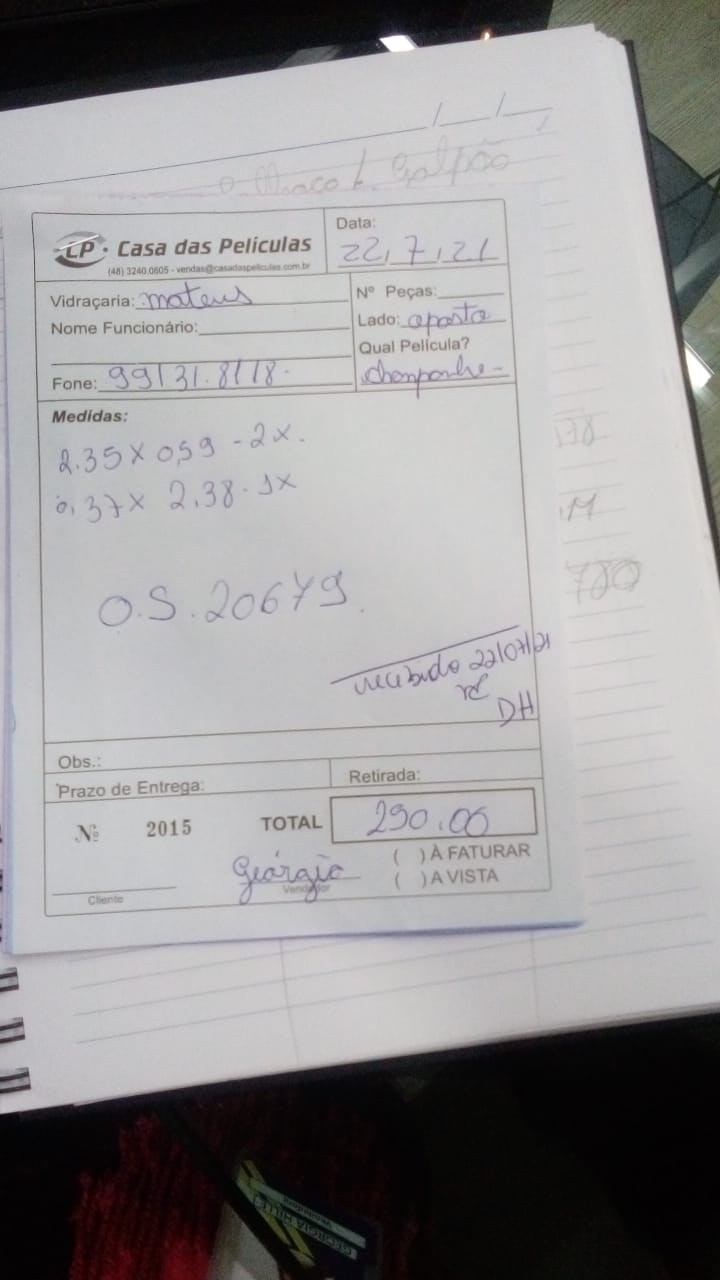 Galpão
CP · Casa das Películas
(48) 3240.0605 - vendas@casadaspeliculas.com.br
Data:
22/7/21
Vidraçaria: mateus
Nome Funcionário:
Fone: 99131.8118.
Nº Peças:
Lado: oposto
Qual Película?
champanhe -
Medidas:
2.35 x 0,59 - 2x.
0,37 x 2,38 . 1x
O.S. 20679.
recebido 22/07/21
DH
Obs.:
Prazo de Entrega:
Retirada:
Nº 2015
TOTAL 290.00
( ) À FATURAR
( ) A VISTA
Geórgia
Cliente
Vendedor
,78
,11
780
GEORGIA
Vendedora